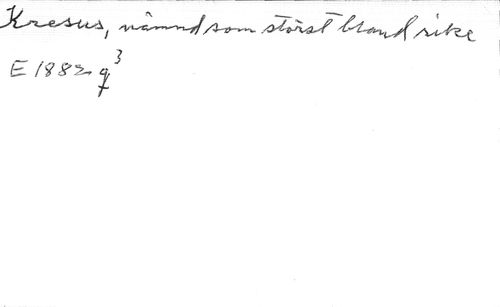 Kresus, nämnd som störst bland rike
E 1882 q³